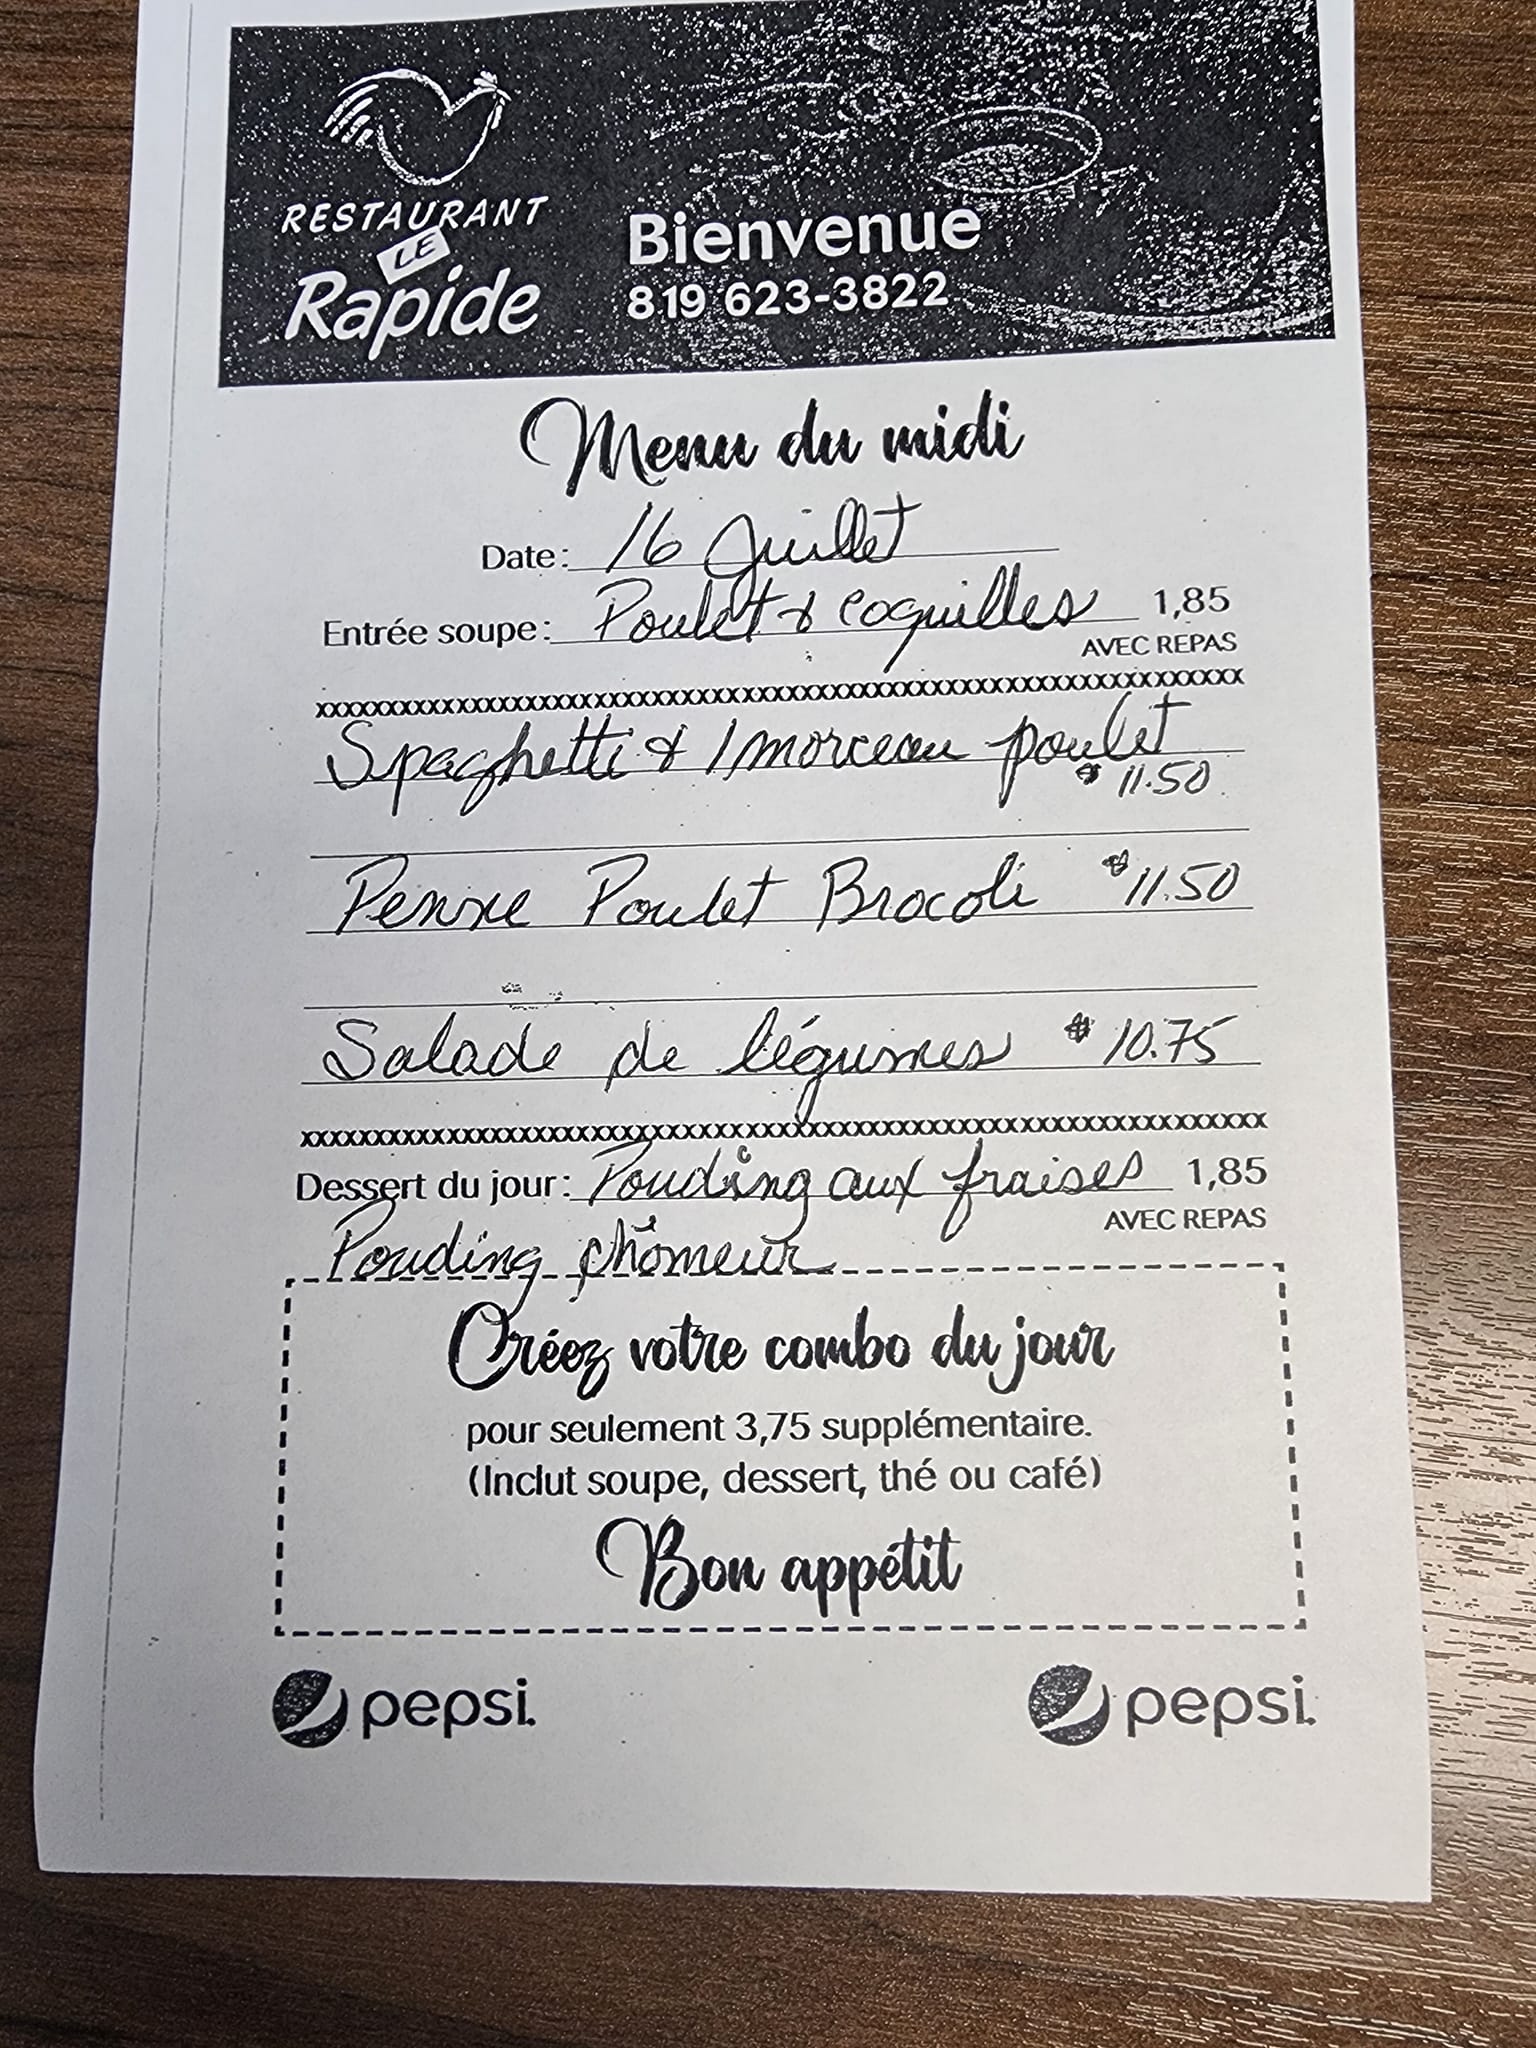 RESTAURANT
LE
Rapide
Bienvenue
819 623-3822
Menu du midi
Date: 16 Juillet
Entrée soupe: Poulet & coquilles 1,85
AVEC REPAS
xxxxxxxxxxxxxxxxxxxxxxxxxxxxxxxxxxxxxxxxxxxxxxxxxxxxxxxxxxxxxxxxxxxxxxxx
Spaghetti & 1 morceau poulet
$ 11.50
Penne Poulet Brocoli $ 11.50
Salade de légumes $ 10.75
xxxxxxxxxxxxxxxxxxxxxxxxxxxxxxxxxxxxxxxxxxxxxxxxxxxxxxxxxxxxxxxxxxxxxxxx
Dessert du jour: Pouding aux fraises 1,85
AVEC REPAS
Pouding chômeur
Créez votre combo du jour
pour seulement 3,75 supplémentaire.
(Inclut soupe, dessert, thé ou café)
Bon appétit
pepsi. pepsi.